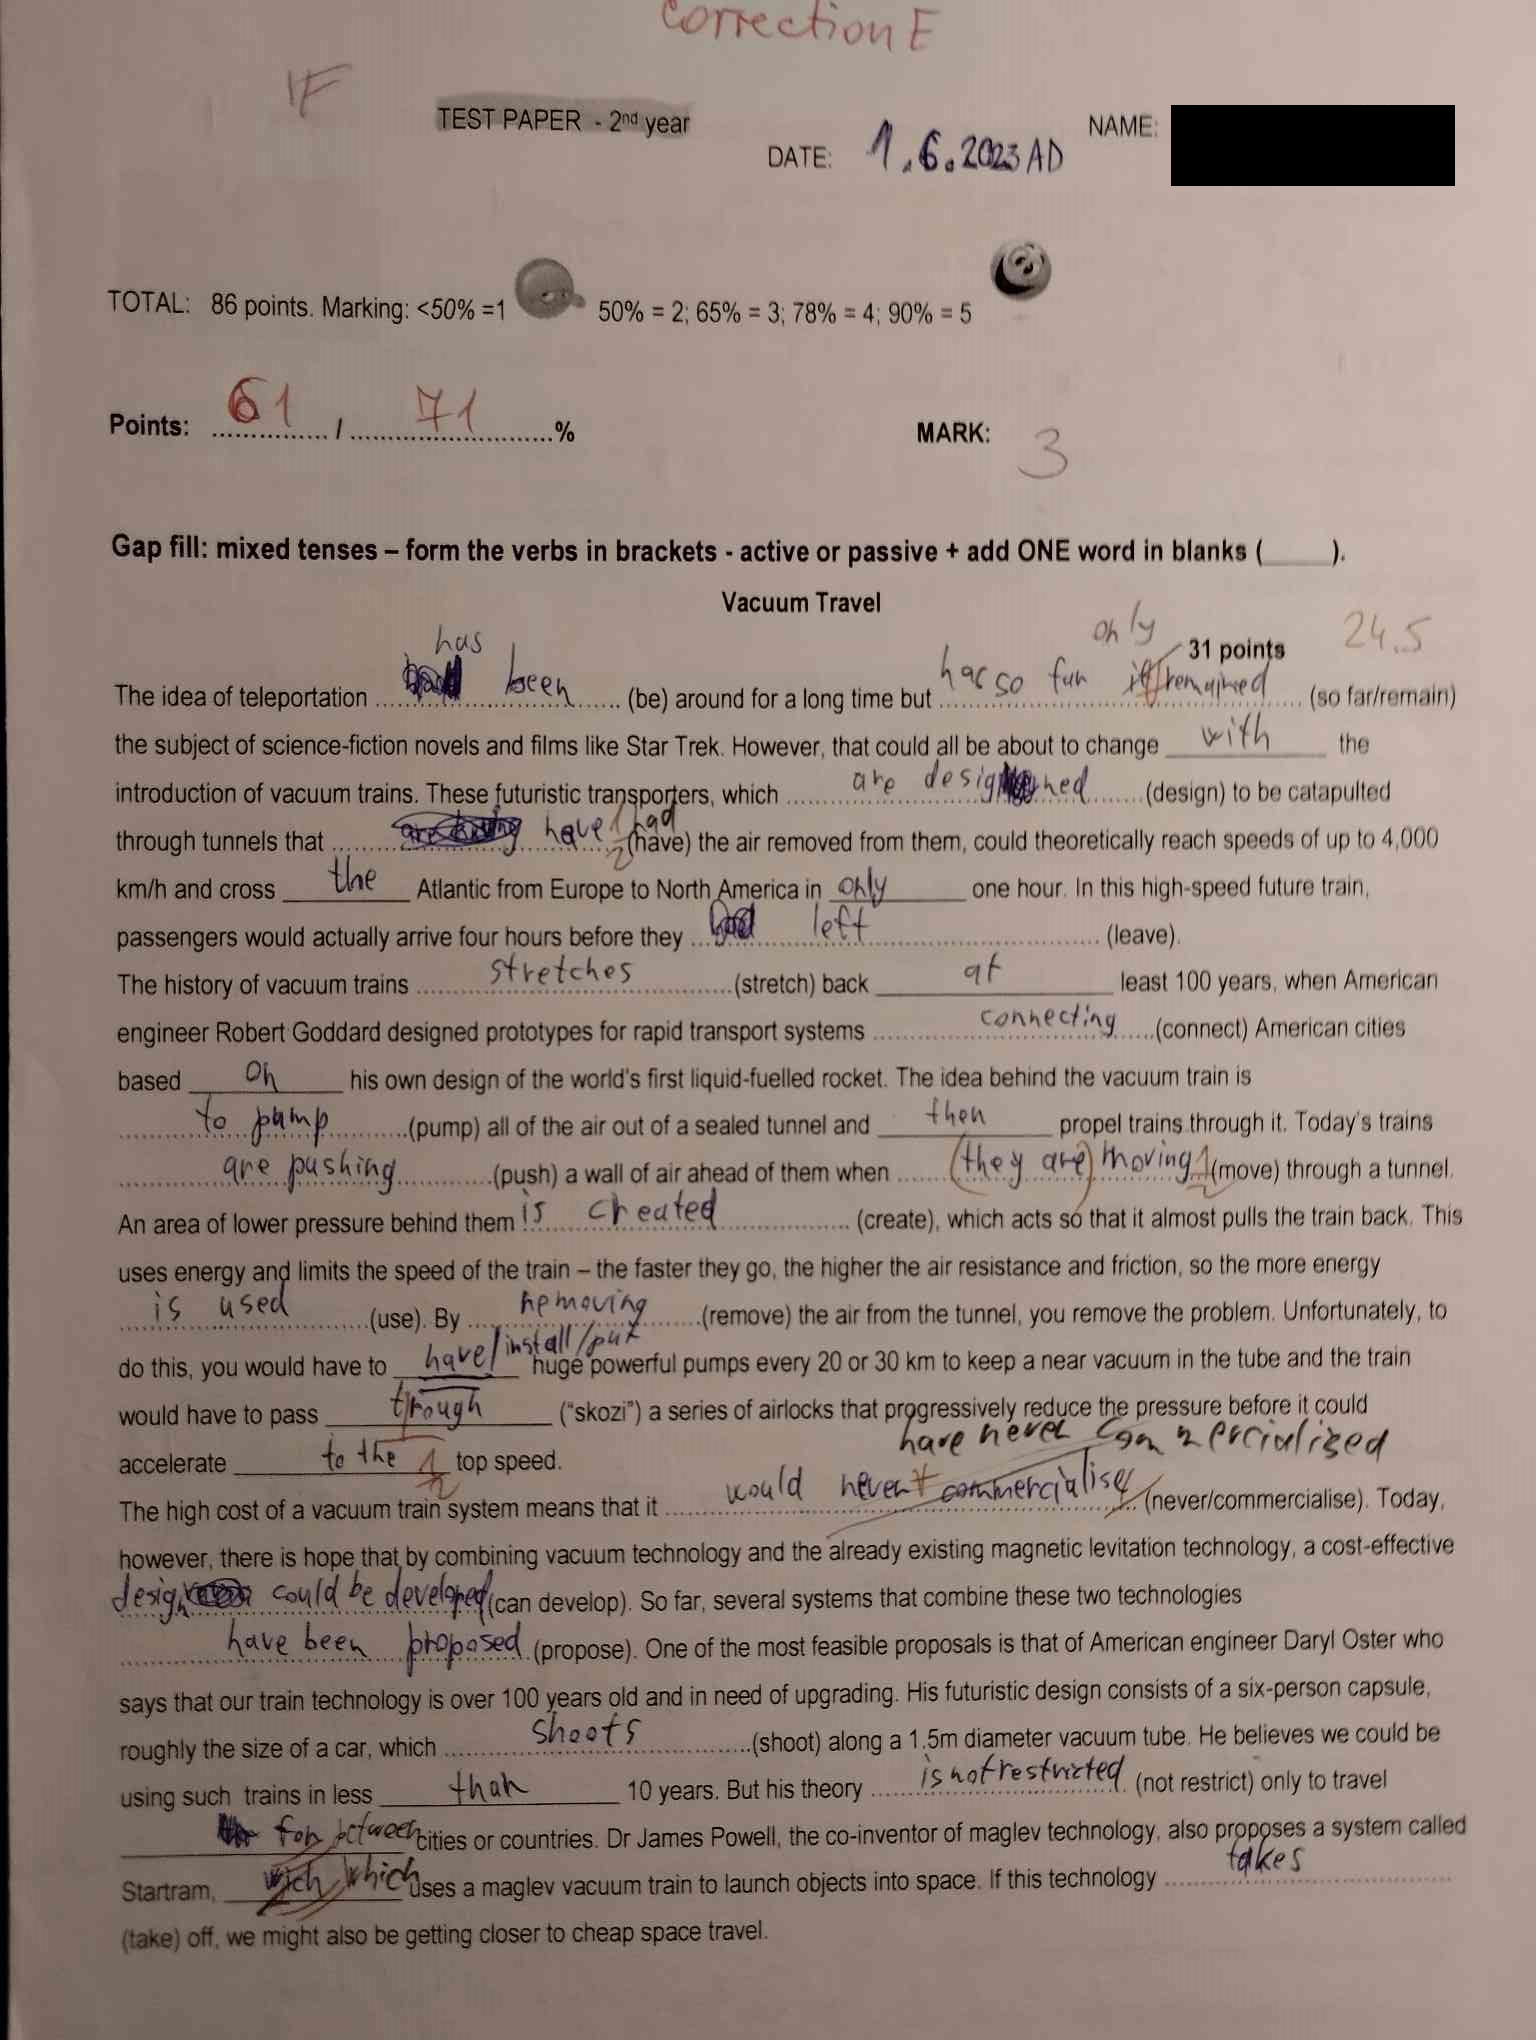 Correction E
1F
TEST PAPER - 2nd year
DATE: 1.6.2023 AD
NAME:
TOTAL: 86 points. Marking: <50% =1 50% = 2; 65% = 3; 78% = 4; 90% = 5
Points: 61 / 71 %
MARK: 3
Gap fill: mixed tenses – form the verbs in brackets - active or passive + add ONE word in blanks (____).
Vacuum Travel
31 points 24.5
only
The idea of teleportation has been (be) around for a long time but has so far remained (so far/remain)
the subject of science-fiction novels and films like Star Trek. However, that could all be about to change with the
introduction of vacuum trains. These futuristic transporters, which are designed (design) to be catapulted
through tunnels that have had (have) the air removed from them, could theoretically reach speeds of up to 4,000
km/h and cross the Atlantic from Europe to North America in only one hour. In this high-speed future train,
passengers would actually arrive four hours before they left (leave).
The history of vacuum trains stretches (stretch) back at least 100 years, when American
engineer Robert Goddard designed prototypes for rapid transport systems connecting (connect) American cities
based on his own design of the world's first liquid-fuelled rocket. The idea behind the vacuum train is
to pump (pump) all of the air out of a sealed tunnel and then propel trains through it. Today's trains
are pushing (push) a wall of air ahead of them when (they are) moving (move) through a tunnel.
An area of lower pressure behind them is created (create), which acts so that it almost pulls the train back. This
uses energy and limits the speed of the train – the faster they go, the higher the air resistance and friction, so the more energy
is used (use). By removing (remove) the air from the tunnel, you remove the problem. Unfortunately, to
do this, you would have to have/install/put huge powerful pumps every 20 or 30 km to keep a near vacuum in the tube and the train
would have to pass trough ("skozi") a series of airlocks that progressively reduce the pressure before it could
accelerate to the top speed.
have never commercialized
The high cost of a vacuum train system means that it would never commercialise (never/commercialise). Today,
however, there is hope that by combining vacuum technology and the already existing magnetic levitation technology, a cost-effective
design could be developed (can develop). So far, several systems that combine these two technologies
have been proposed (propose). One of the most feasible proposals is that of American engineer Daryl Oster who
says that our train technology is over 100 years old and in need of upgrading. His futuristic design consists of a six-person capsule,
roughly the size of a car, which shoots (shoot) along a 1.5m diameter vacuum tube. He believes we could be
using such trains in less than 10 years. But his theory is not restricted (not restrict) only to travel
for between cities or countries. Dr James Powell, the co-inventor of maglev technology, also proposes a system called
Startram, wich which uses a maglev vacuum train to launch objects into space. If this technology takes
(take) off, we might also be getting closer to cheap space travel.